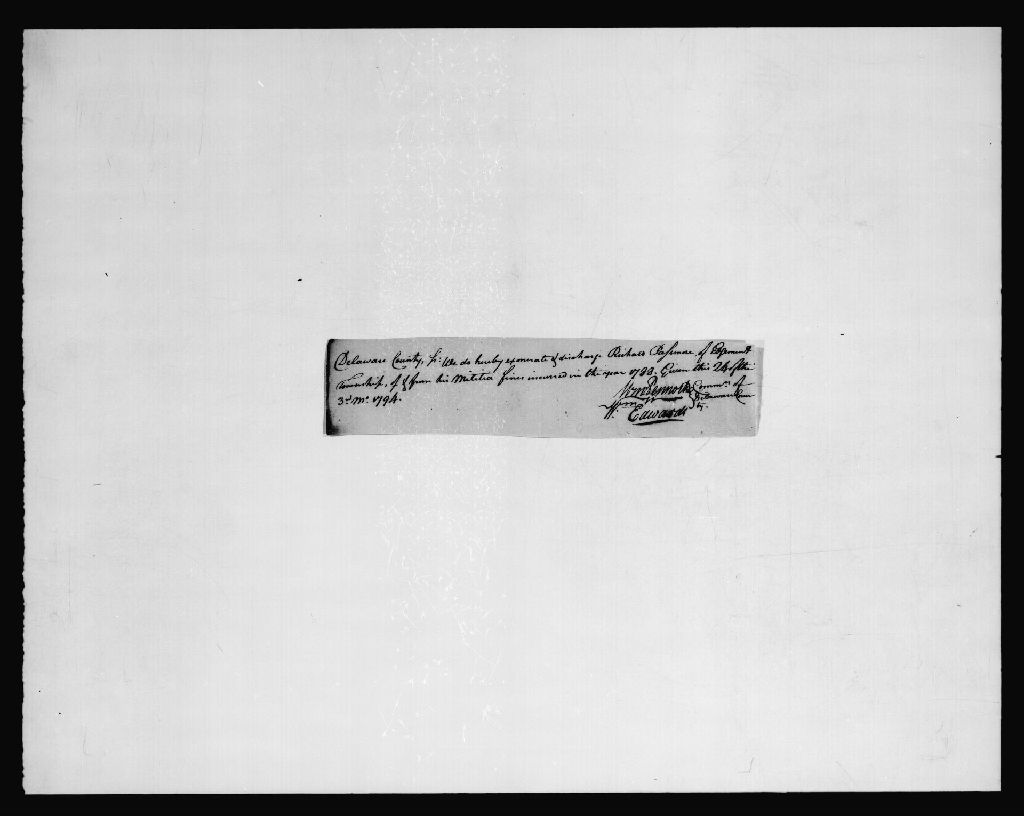 Delaware County, ss: We do hereby exonerate & discharge Richard Passmore of Edgmont
Township, of & from his Militia fines incurred in the year 1793. Given this 24 of the
3d. Mo. 1794.
Wm Pennock Commrs. of
Wm. Edwards Delaware Coun
ty.